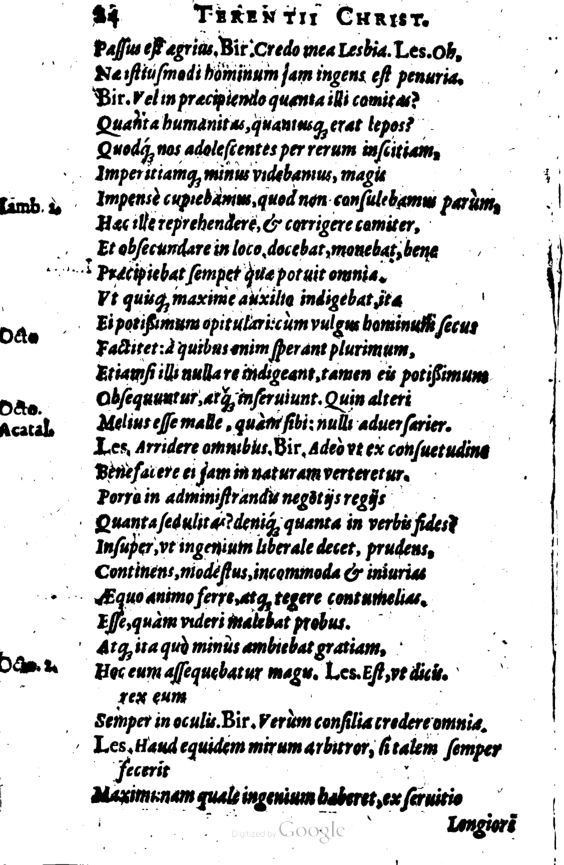 24 TERENTII CHRIST.
Paſſus eſt agrius. Bir. Credo mea Lesbia. Les. Oh,
Na iſtiuſmodi hominum jam ingens eſt penuria.
Bir. Vel in præcipiendo quanta illi comitas?
Quanta humanitas, quantusq́; erat lepos?
Quodq́; nos adoleſcentes per rerum inſcitiam,
Imperitiamq́; minus videbamus, magis
Iamb. 2. Impensè cupiebamus, quod non conſulebamus parùm,
Hæc ille reprehendere, & corrigere comiter,
Et obſecundare in loco, docebat, monebat, bene
Præcipiebat ſemper quæ potuit omnia.
Vt quisq́; maxime auxilio indigebat, ita
Ei potißimum opitulari: cùm vulgus hominum ſecus
Octo Factitet: à quibus enim ſperant plurimum,
Etiamſi illi nulla re indigeant, tamen eis potißimum
Octo. Obſequuntur, atq́; inſeruiunt. Quin alteri
Acatal. Melius eſſe malle, quàm ſibi: nulli aduerſarier.
Les. Arridere omnibus. Bir. Adeò vt ex conſuetudine
Benefacere ei jam in naturam verteretur.
Porro in adminiſtrandis negòtijs regijs
Quanta ſedulitas? deniq́; quanta in verbis fides?
Inſuper, vt ingenium liberale decet, prudens,
Continens, modeſtus, incommoda & iniurias
Æquo animo ferre, atq́; tegere contumelias.
Eſſe, quàm videri malebat probus.
Atq́; ita quò minùs ambiebat gratiam,
Octo. 2. Hoc eum aſſequebatur magis. Les. Eſt, vt dicis.
rex eum
Semper in oculis. Bir. Verùm conſilia credere omnia.
Les. Haud equidem mirum arbitror, ſi talem ſemper
fecerit
Maximi: nam quale ingenium haberet, ex ſeruitio
Longiorē
Digitized by Google